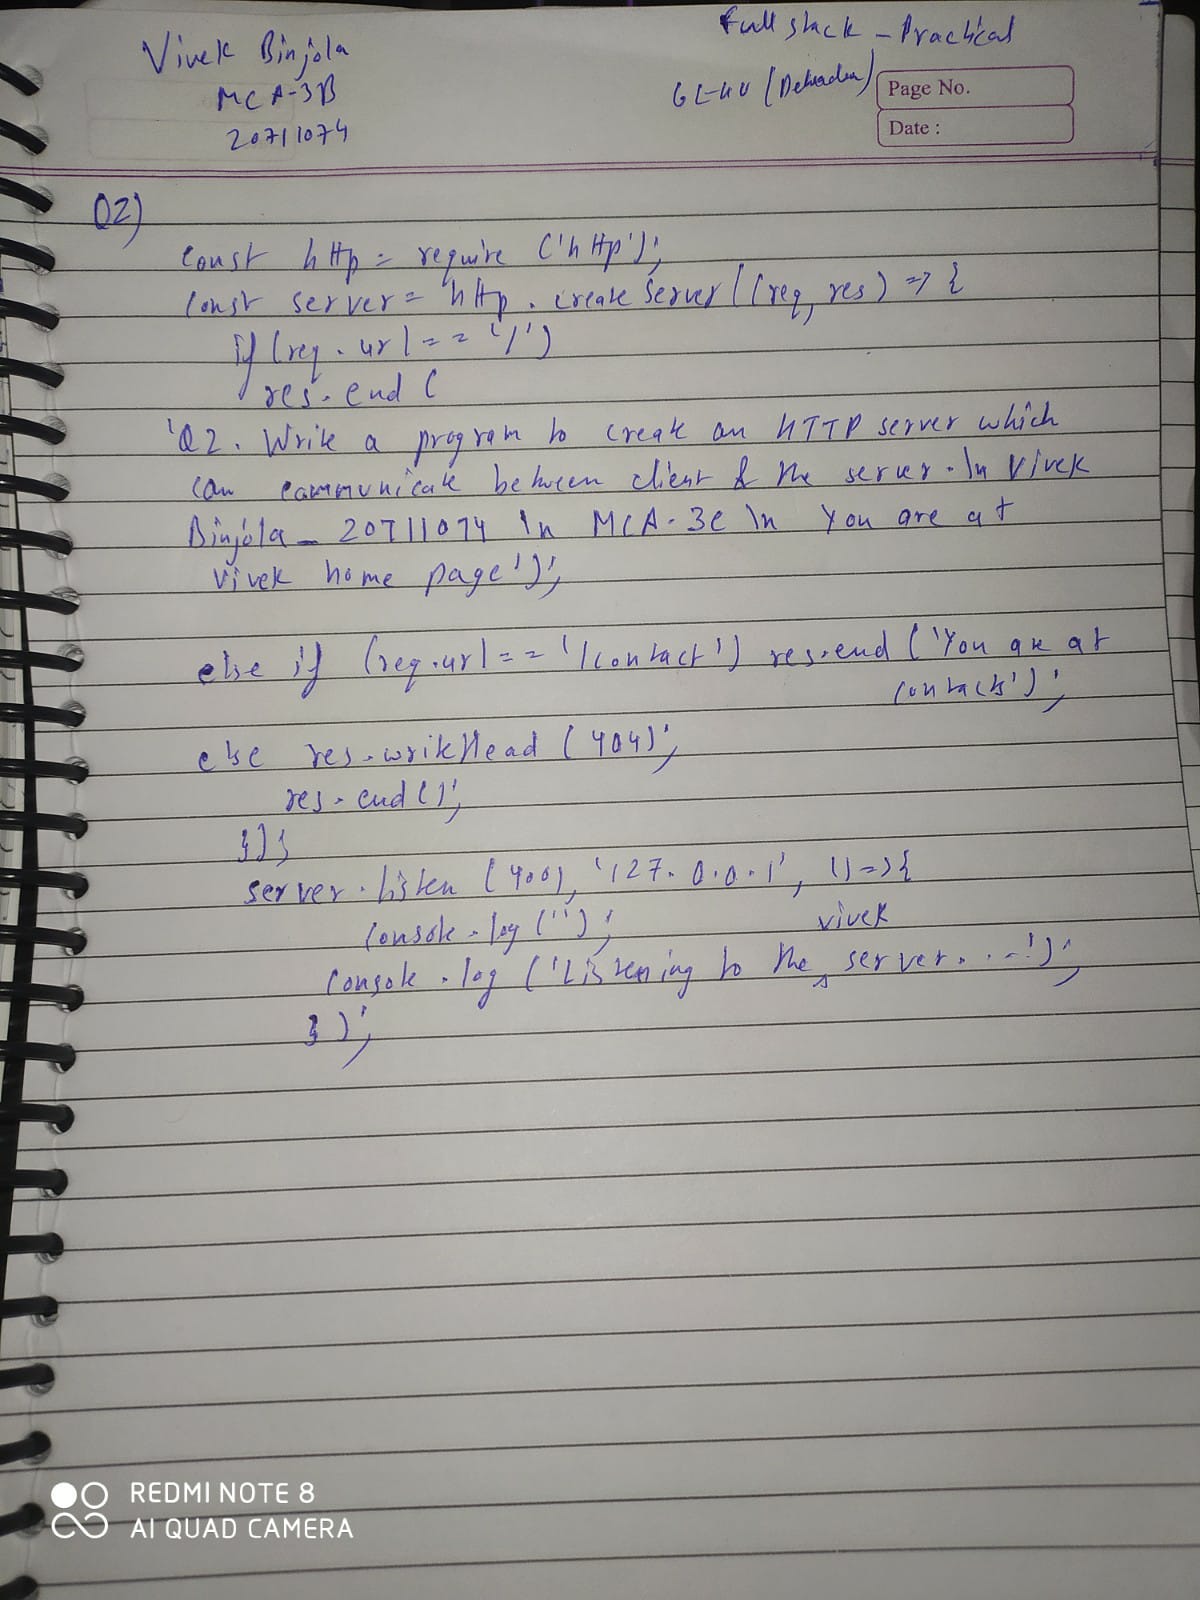 Vivek Binjola
MCA-3B
20711074
Full stack - Practical
GEHU (Dehradun)
Page No.
Date :
Q2)
const http = require ('http');
const server = http.createServer((req, res) => {
if (req.url == '/')
res.end (
'Q2. Write a program to create an HTTP server which
can communicate between client & the server.\n Vivek
Binjola - 20711074 \n MCA-3C \n You are at
vivek home page');
else if (req.url == '/contact') res.end ('You are at
contacts');
else res.writeHead (404);
res.end();
});
server.listen (400), '127.0.0.1', () => {
console.log ('');
vivek
console.log ('Listening to the server...');
});
REDMI NOTE 8
AI QUAD CAMERA